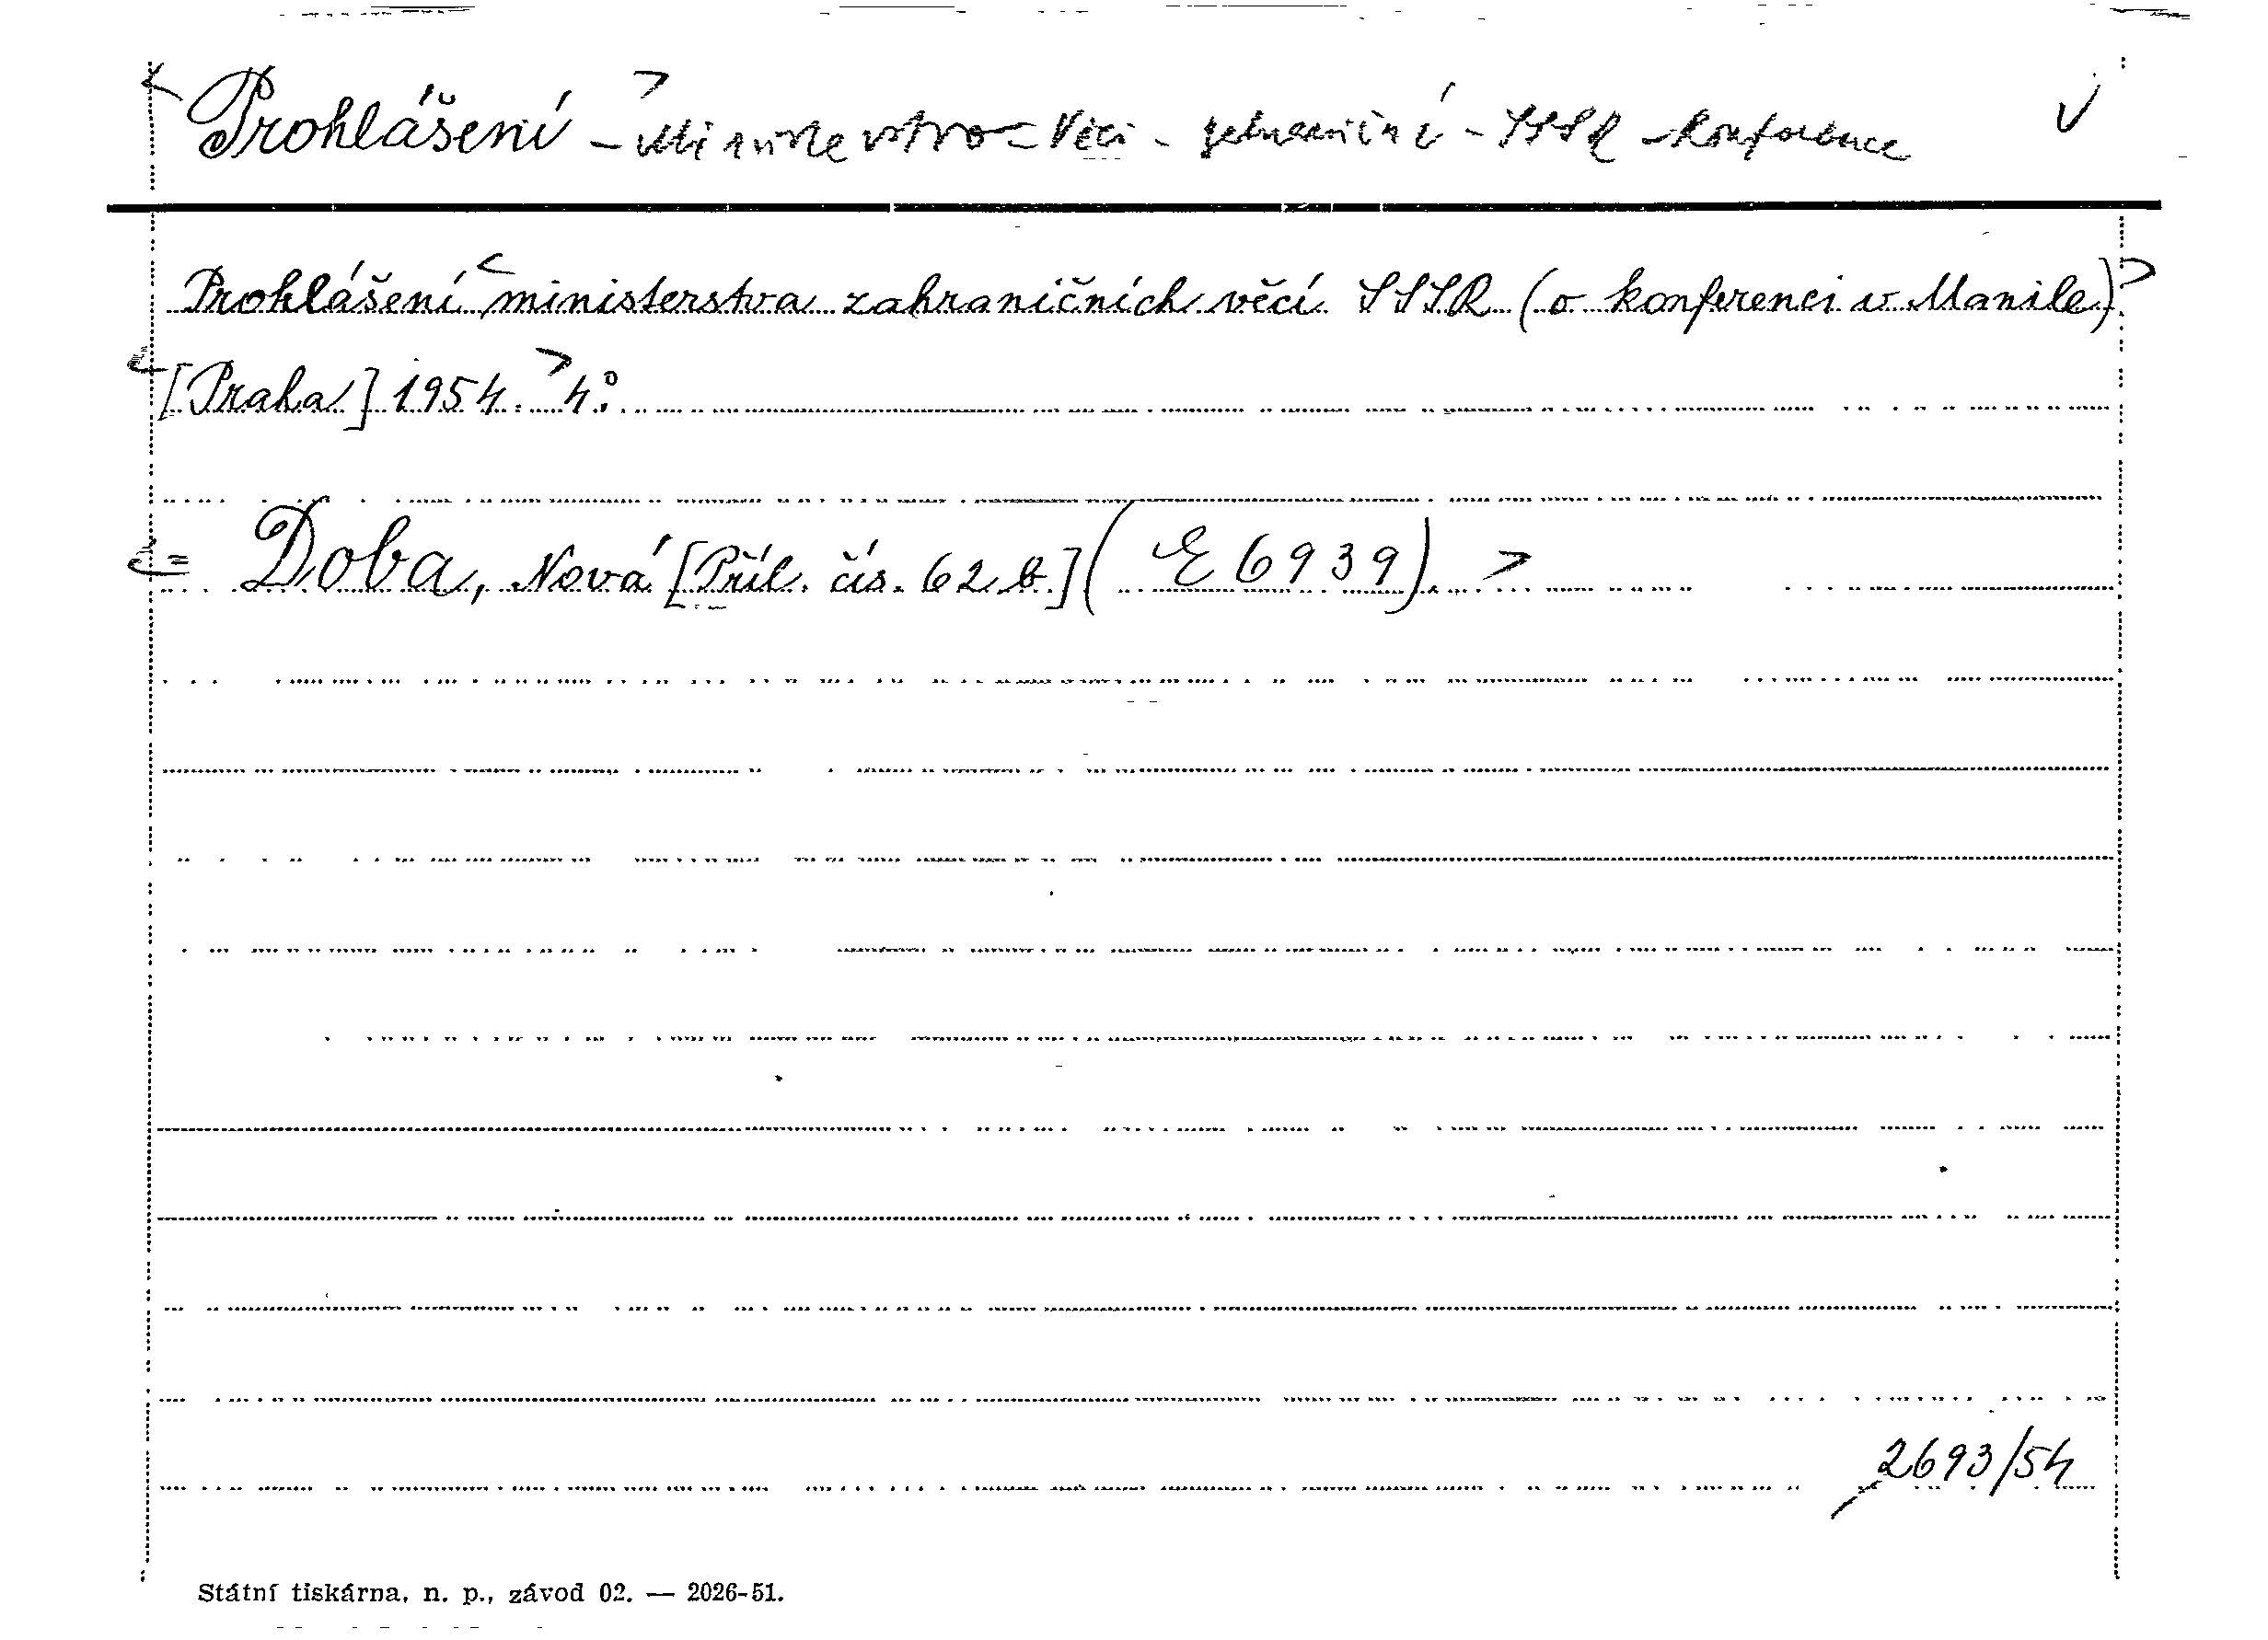 Prohlášení - Ministerstvo - Věci - zahraniční - SSSR - Konference
Prohlášení ministerstva zahraničních věcí SSSR (o konferenci v Manile)
[Praha] 1954. 4°.
= Doba, Nová [Příl. čís. 62 b] (E 6939).
2693/54
Státní tiskárna, n. p., závod 02. — 2026-51.